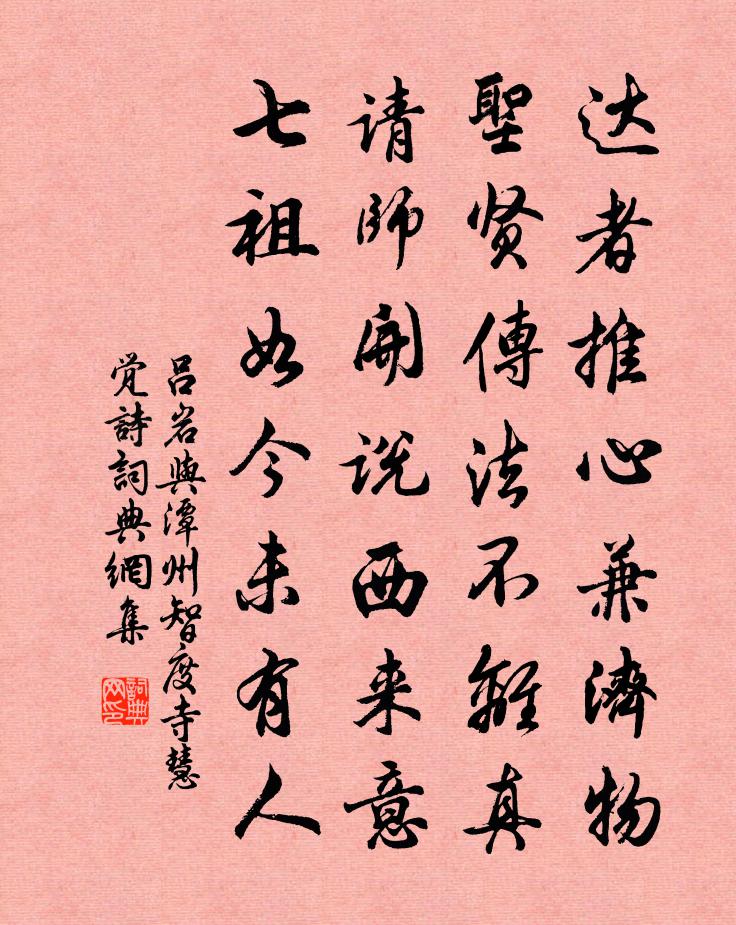 达者推心兼濟物
聖贤傳法不離真
请師開说西来意
七祖如今未有人
吕岩與潭州智度寺慧
觉詩詞典網集
詞典
网印